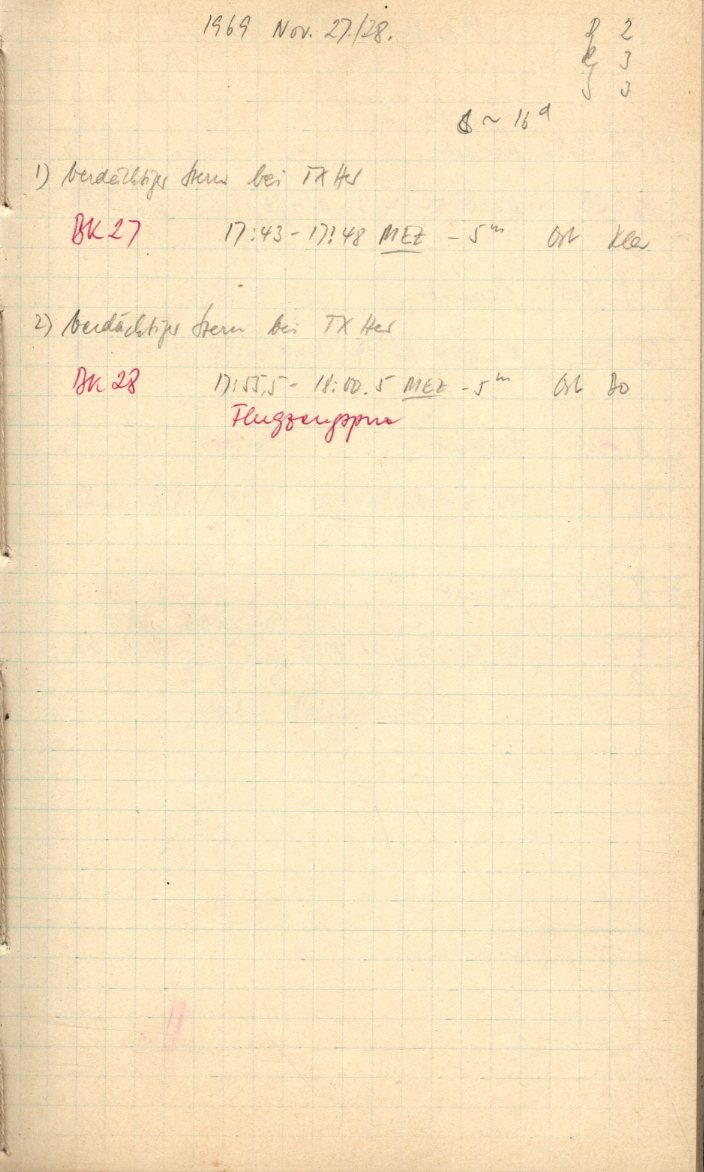 1969 Nov. 27./28.
2
3
3
~ 16 d
1) verdächtiger Stern bei TX Her
BK 27 17:43 - 17:48 MEZ - 5 m Ost
2) verdächtiger Stern bei TX Her
BK 28 17:55,5 - 18:00.5 MEZ - 5 m Ost Bo
Flugzeugspur